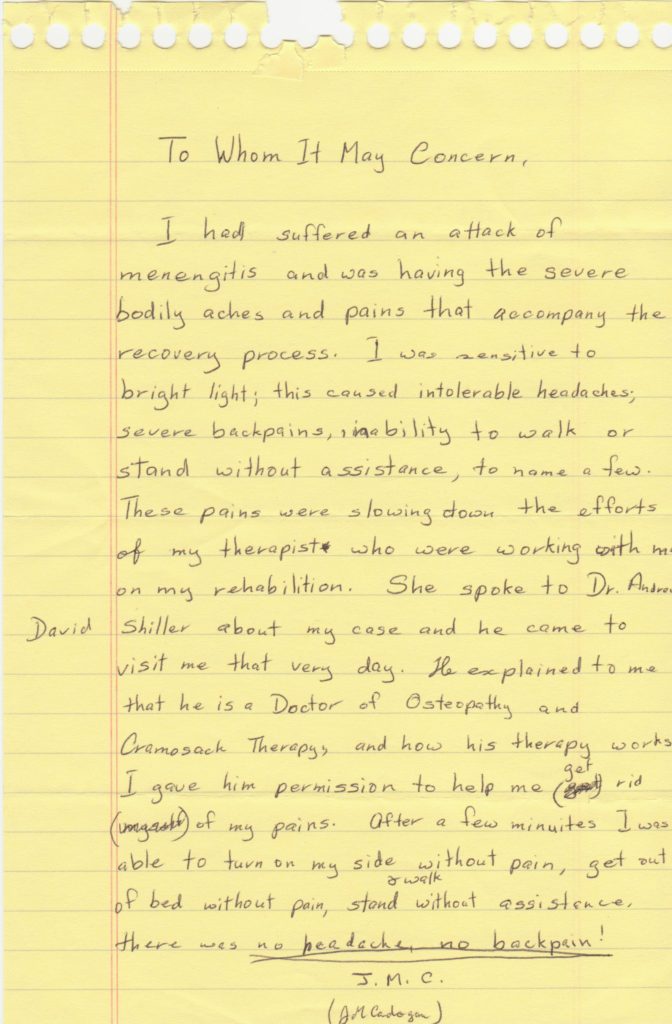 To Whom It May Concern,
I had suffered an attack of
menengitis and was having the severe
bodily aches and pains that accompany the
recovery process. I was sensitive to
bright light; this caused intolerable headaches;
severe backpains, inability to walk or
stand without assistance, to name a few.
These pains were slowing down the efforts
of my therapist who were working with m
on my rehabilition. She spoke to Dr. Andrew
David Shiller about my case and he came to
visit me that very day. He explained to me
that he is a Doctor of Osteopathy and
Cramosack Therapy, and how his therapy works
I gave him permission to help me (get) rid
of my pains. After a few minuites I was
able to turn on my side without pain, get out
of bed without pain, stand & walk without assistance,
there was no headache, no backpain!
J. M. C.
(JM Cadogan)